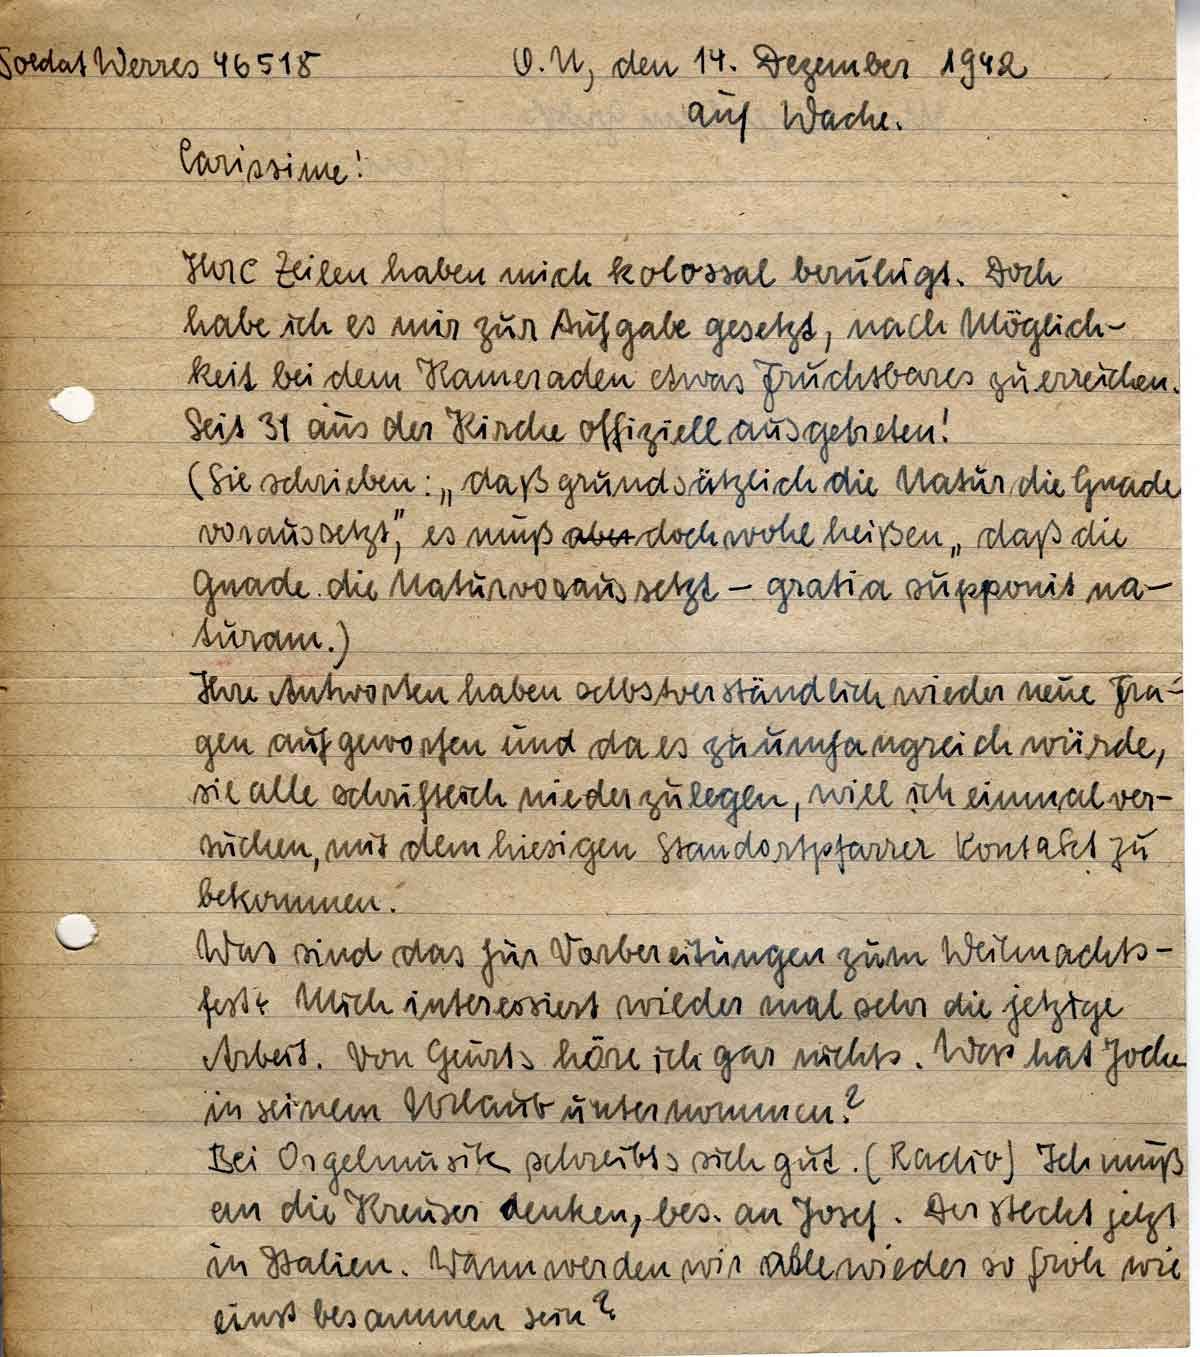 Soldat Werres 46518
O.U, den 14. Dezember 1942
auf Wache.
Carissime!
Ihre Zeilen haben mich kolossal beruhigt. Doch
habe ich es mir zur Aufgabe gesetzt, nach Möglich-
keit bei dem Kameraden etwas Fruchtbares zu erreichen.
Seit 31 aus der Kirche offiziell ausgetreten!
(Sie schrieben: „daß grundsätzlich die Natur die Gnade
voraussetzt", es muß aber doch wohl heißen „daß die
Gnade die Natur voraussetzt - gratia supponit na-
turam.)
Ihre Antworten haben selbstverständlich wieder neue Fra-
gen aufgeworfen und da es zu umfangreich würde,
sie alle schriftlich niederzulegen, will ich einmal ver-
suchen, mit dem hiesigen Standortpfarrer Kontakt zu
bekommen.
Was sind das für Vorbereitungen zum Weihnachts-
fest? Mich interessiert wieder mal sehr die jetzige
Arbeit. Von Geurts höre ich gar nichts. Was hat Joche
in seinem Urlaub unternommen?
Bei Orgelmusik schreibts sich gut. (Radio) Ich muß
an die Kreuser denken, bes. an Josef. Der steckt jetzt
in Italien. Wann werden wir alle wieder so froh wie
einst besammen sein?